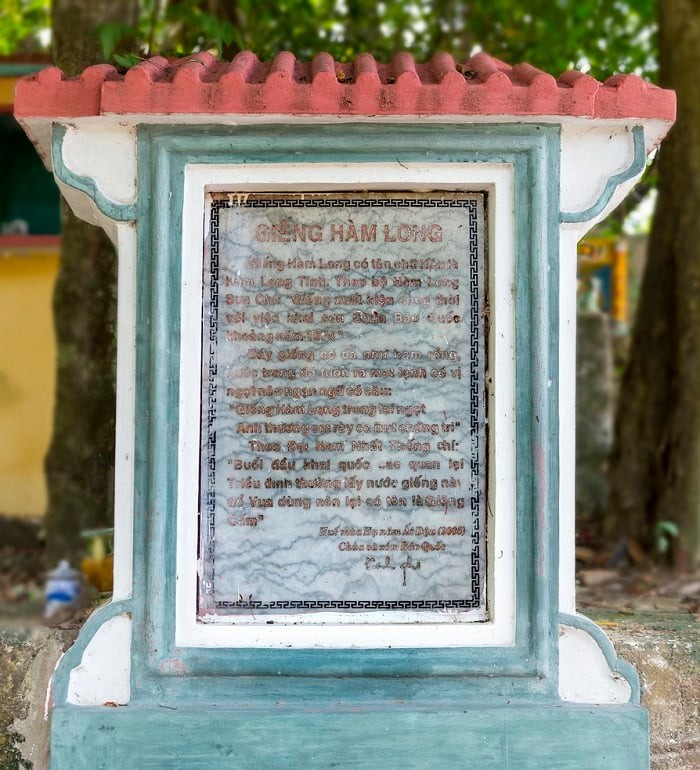 GIẾNG HÀM LONG
Giếng Hàm Long có tên chữ Hán là
Hàm Long Tỉnh. Theo bộ Hàm Long
Sơn Chí: "Giếng xuất hiện cùng thời
với việc khai sơn Chùa Báo Quốc
khoảng năm
Đáy giếng có đá như hàm rồng,
nước trong đá tuôn ra mát lạnh có vị
ngọt nên ngạn ngữ có câu:
"Giếng Hàm Long trong lại ngọt
Anh thương em rày có Bụt chứng tri"
Theo Đại Nam Nhất Thống chí:
"Buổi đầu khai quốc các quan lại
Triều đình thường lấy nước giếng này
để Vua dùng nên lại có tên là Giếng
Cấm"
Huế mùa Hạ năm Ất Dậu (2005)
Chùa cổ sắc Báo Quốc